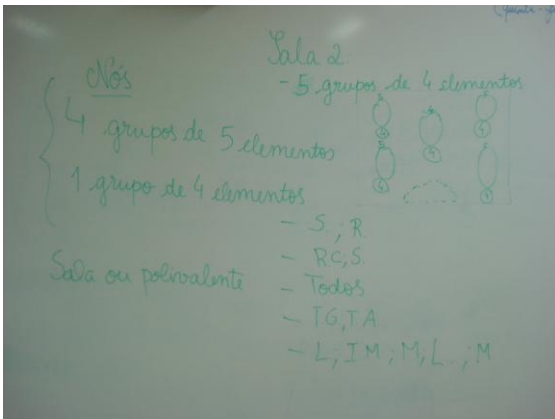 Sala 2
- 5 grupos de 4 elementos
Nós
4 grupos de 5 elementos
1 grupo de 4 elementos
Sala ou polivalente
- S.; R.
- RC; S.
- Todos
- TG; TA
- L; IM; M; L.; M
5
4
5
4
5
4
5
4
5
4